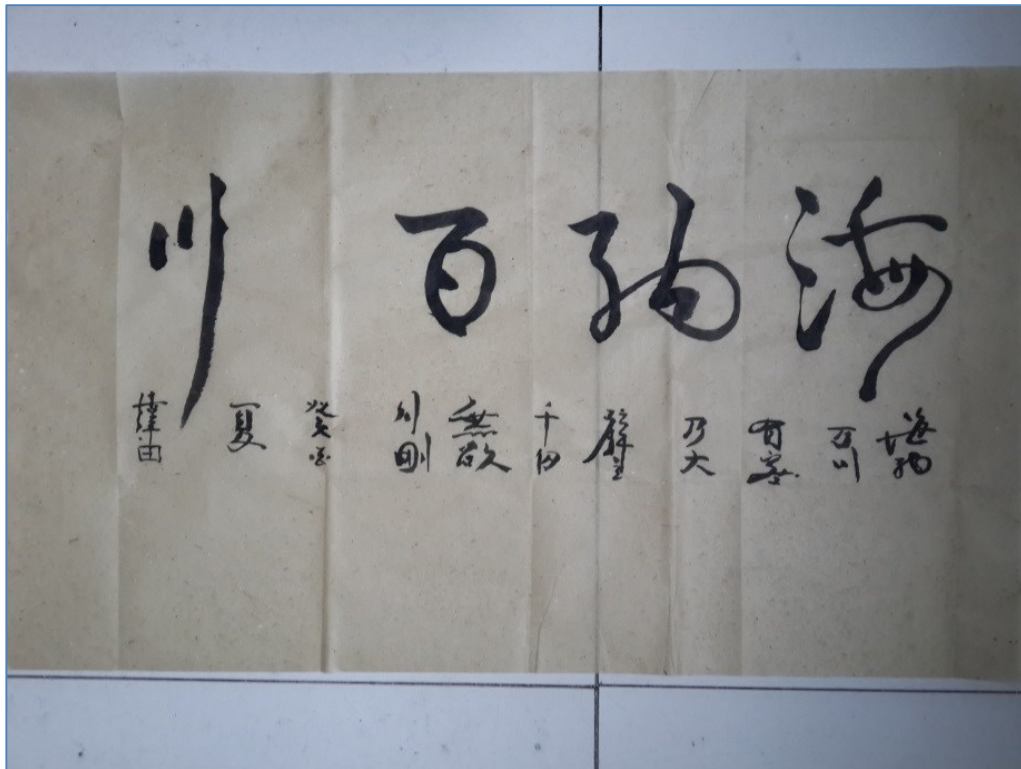 海納百川
海納
百川
有容
乃大
壁立
千仞
無欲
則剛
夏